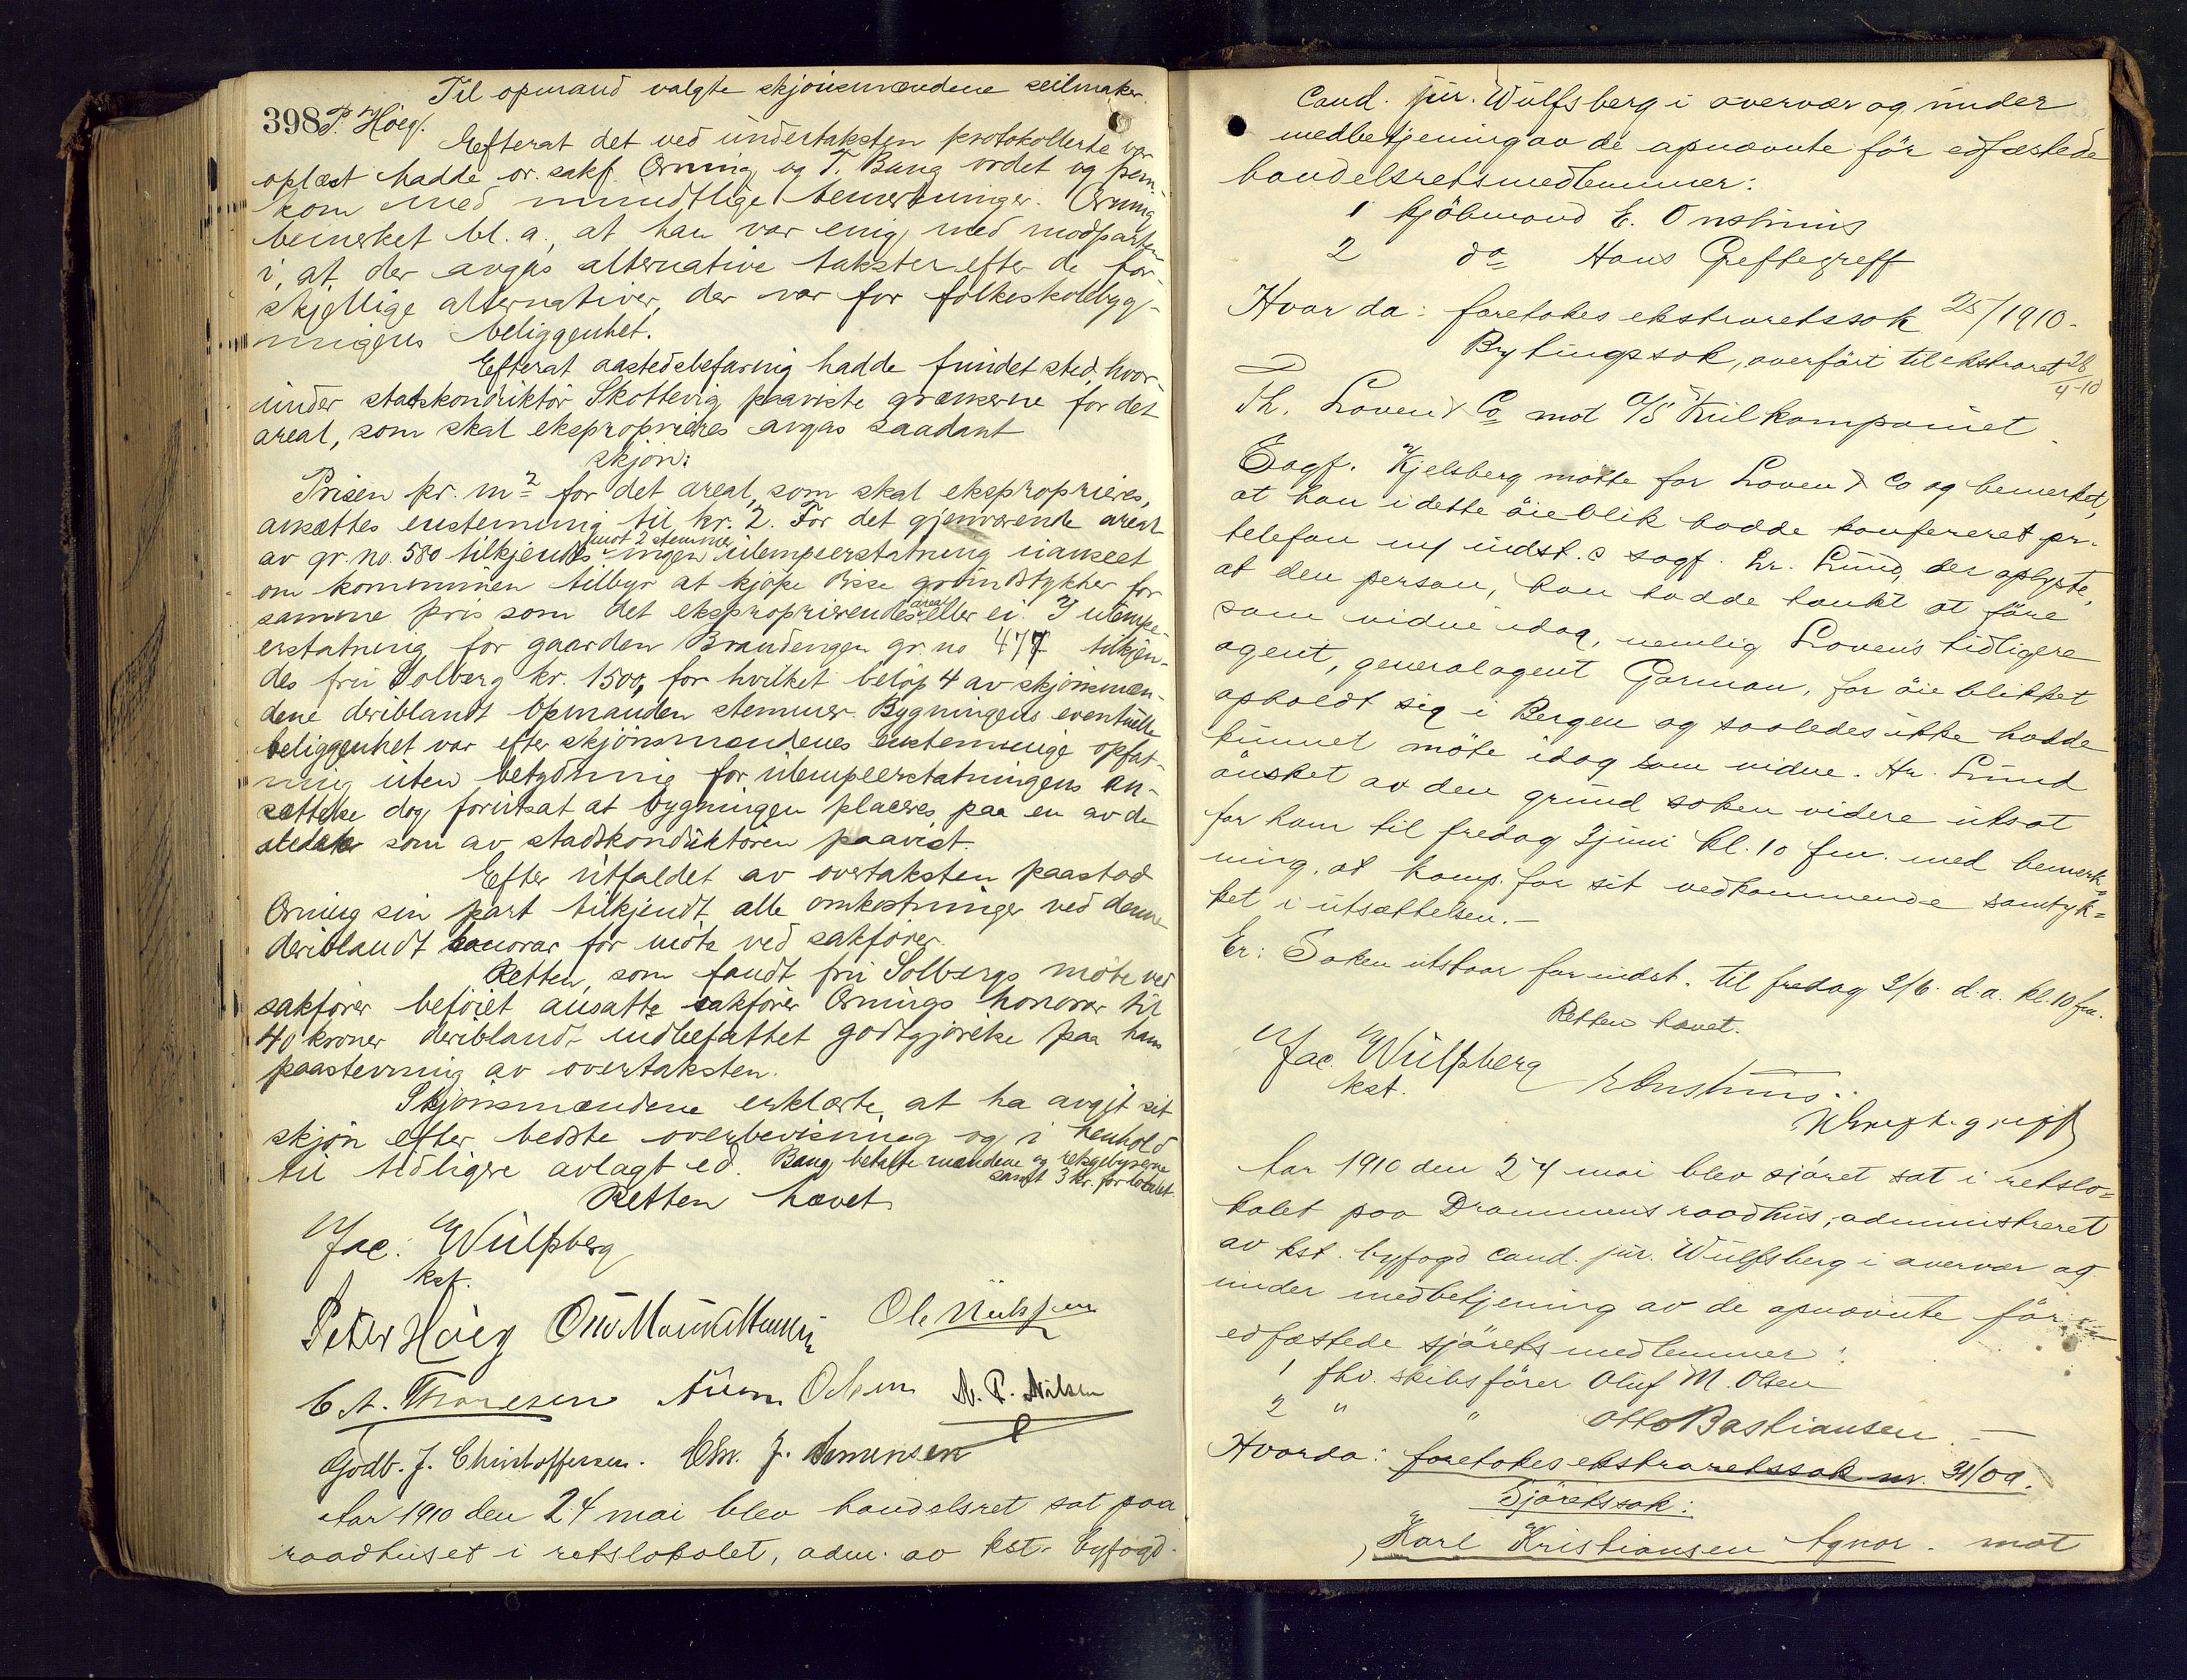 Til opmand valgte skjønsmændene seilmaker
398 P. Høeg.
Efterat det ved undertaksten protokollerte var
oplæst hadde or. sakf. Orning og T. Bang ordet og frem-
kom med mundtlige bemerkninger. Orning
bemerket bl. a., at han var enig med motparten
i, at der avgås alternative takster efter de for-
skjellige alternativer, der var for folkeskolebyg-
ningens beliggenhet.
Efterat aastedsbefaring hadde fundet sted, hvor-
under stadskonduktør Skottevig paaviste grænserne for det
areal, som skal eksproprieres avgas saadant
skjøn:
Prisen pr. m² for det areal, som skal eksproprieres,
ansættes enstemmig til kr. 2. For det gjenværende areal
av gr. no. 580 tilkjendes mot 2 stemmer ingen ulempeerstatning uanseet
om kommunen tilbyr at kjøpe disse grundstykker for
samme pris som det eksproprierendes areal eller ei. I ulempe-
erstatning for gaarden Brandengen gr. no 477 tilkjen-
des fru Solberg kr. 1500, for hvilket beløp 4 av skjønsmæn-
dene deriblandt opmanden stemmer. Bygningens eventuelle
beliggenhet var efter skjønsmændenes enstemmige opfat-
ning uten betydning for ulempeerstatningens an-
sættelse dog forutsat at bygningen placeres paa en av de
steder som av stadskonduktøren paavist.
Efter utfaldet av overtaksten paastod
Orning sin part tilkjendt alle omkostninger ved denne
deriblandt honorar for møte ved sakfører.
Retten, som fandt fru Solbergs møte ved
sakfører beføiet ansatte sakfører Ornings honorar til
40 kroner deriblandt indbefattet godtgjørelse paa hans
paastevning av overtaksten.
Skjønsmændene erklærte, at ha avgit sit
skjøn efter bedste overbevisning og i henhold
til tidligere avlagt ed. Bang betalte mændene og retsgebyrerne
samt 3 kr. for lokalet.
Retten hævet
Jac. Wulfsberg
kst.
Peter Höeg Otto Ole Nielsen
C A. Thoresen Olsen A. P. Nilsen
Godb. J. Christoffersen. Chr. J. Amunsen
Aar 1910 den 24 mai blev handelsret sat paa
raadhuset i retslokalet, adm. av kst. byfogd
Cand. jur. Wulfsberg i overvær og under
medbetjening av de opnævnte før edfæstede
handelsretsmedlemmer:
1 kjøbmand E. Onstinus
2 do Hans Greftegreff
Hvorda: foretokes ekstraretssak 25/1910.
Bytingssak, overført til ekstraret 28/4-10
Th. Loven & Co mot A/S Kulkompaniet
Sagf. Kjelsberg møtte for Loven & Co og bemerket,
at han i dette øieblik hadde konfereret pr.
telefon m/ indst. s sagf. hr. Lund, der oplyste,
at den person, han hadde tænkt at føre
som vidne idag, nemlig Lovens tidligere
agent, generalagent Garman, for øieblikket
opholdt sig i Bergen og saaledes ikke hadde
kunnet møte idag som vidne. Hr. Lund
ønsket av den grund saken videre utsat
for ham til fredag 3 juni kl. 10 fm. med bemerk-
ning, at komp. for sit vedkommende samtyk-
ket i utsættelsen.-
Er: Saken utstaar for indst. til fredag 3/6 d.a. kl. 10 fm.
Retten hævet.
Jac. Wulfsberg E Onstinus.
kst.
H Greftegreff
Aar 1910 den 24 mai blev sjøret sat i retslo-
kalet paa Drammens raadhus, administreret
av kst. byfogd cand. jur. Wulfsberg i overvær og
under medbetjening av de opnævnte før
edfæstede sjøretsmedlemmer:
1 fhv. skibsfører Oluf M. Olsen
2 " " Otto Bastiansen. —
Hvorda: foretokes ekstraretssak nr. 31/09.
Sjøretssak:
Karl Kristiansen Agnor. mot